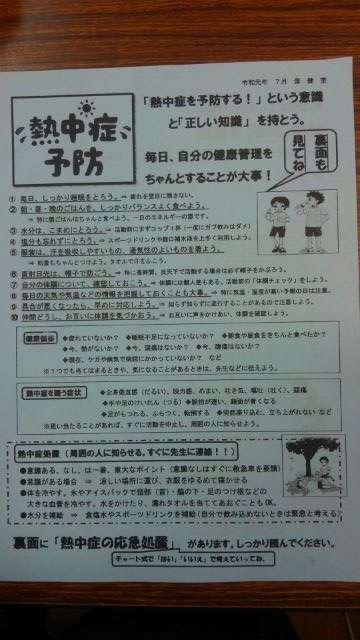 令和元年 7月 保健室
熱中症予防
「熱中症を予防する！」という意識
と「正しい知識」を持とう。
毎日、自分の健康管理を
ちゃんとすることが大事！
裏面も見てね
① 毎日、しっかり睡眠をとろう。→ 疲れを翌日に残さない。
② 朝・昼・晩のごはんを、しっかりバランスよく食べよう。
→ 特に朝ごはんはちゃんと食べよう。一日のエネルギーの源です。
③ 水分は、こまめにとろう。→ 活動前にまずコップ1杯（一度にガブ飲みはダメ）
④ 塩分も忘れずにとろう。→ スポーツドリンクや経口補水液を上手く利用しよう。
⑤ 服装は、汗を吸収しやすいもの、通気性のよいものを着よう。
→ 肌着もちゃんとつけよう。タオルで汗をふこう。
⑥ 直射日光は、帽子で防ごう。→ 特に長時間、炎天下で活動する場合は必ず帽子をかぶろう。
⑦ 自分の体調について、確認しておこう。→ 体調には個人差もある。活動前の「体調チェック」をしよう。
⑧ 毎日の天気や気温などの情報を把握しておくことも大事。→ 特に気温・湿度が高い予報の日は注意。
⑨ 具合が悪くなったら、早めに対応しよう。→ 知らず知らずに進行することがあるので注意しよう。
⑩ 仲間どうし、お互いに体調を気づかおう。→ お互いに声をかけあい、体調を確認しよう。
健康観察
◆疲れていないか？ ◆睡眠不足になっていないか？ ◆朝食や昼食をきちんと食べたか？
◆今、熱がないか？ ◆今、頭痛はないか？ ◆今、腹痛はないか？
◆現在、ケガや病気で病院にかかっていないか？ など
※1つでも当てはまるときや、気になることがあるときは、先生などに伝えよう。
熱中症を疑う症状
◆全身倦怠感（だるい）、脱力感、めまい、吐き気、嘔吐（吐く）、頭痛
◆手や足のけいれん（つる）◆顔色が青くなる
◆足がもつれる、ふらつく、転倒する ◆突然座り込む、立ち上がれない など
※思い当たることがあれば、すぐに活動を中止し、周囲の人に知らせよう。
熱中症処置（周囲の人に知らせる。すぐに先生に連絡！！）
●意識ある、なし、は一番、重大なポイント（意識なしはすぐに救急車を要請）
●意識がある場合 ⇒ 涼しい場所に運び、衣服をゆるめて寝かせる
●体を冷やす。氷やアイスパックで頸部（首）・脇の下・足のつけ根などの
大きな血管を冷やす。水をかけたり、濡れタオルを当ててあおぐこともOK。
●水分を補給 ⇒ 食塩水やスポーツドリンクを補給（自分で飲み込めないときは緊急と考える）
裏面に「熱中症の応急処置」があります。しっかり読んでください。
チャート式で「はい」「いいえ」で考えていってね。